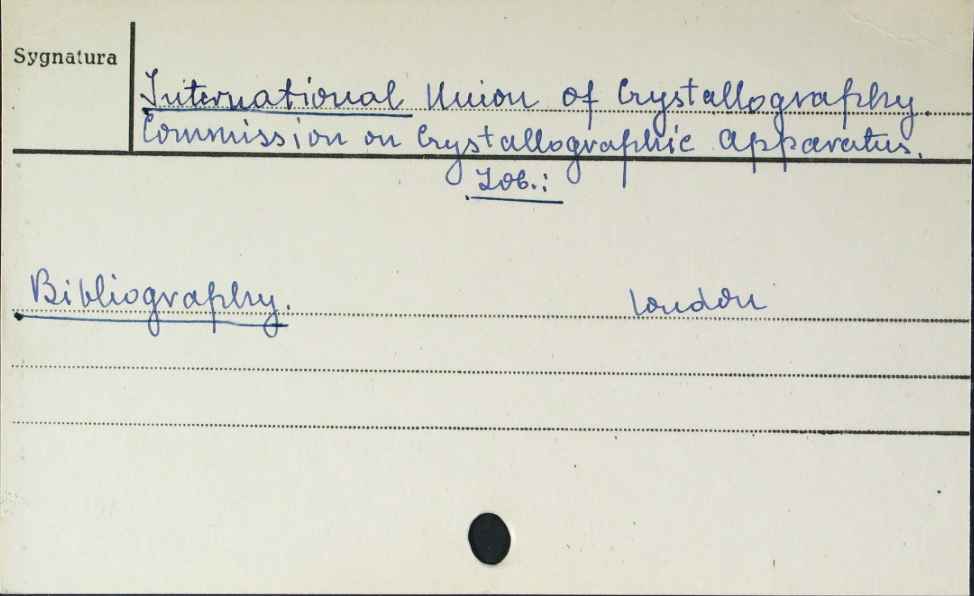 Sygnatura
International Union of Crystallography.
Commission on Crystallographic Apparatus.
Zob.:
Bibliography. London